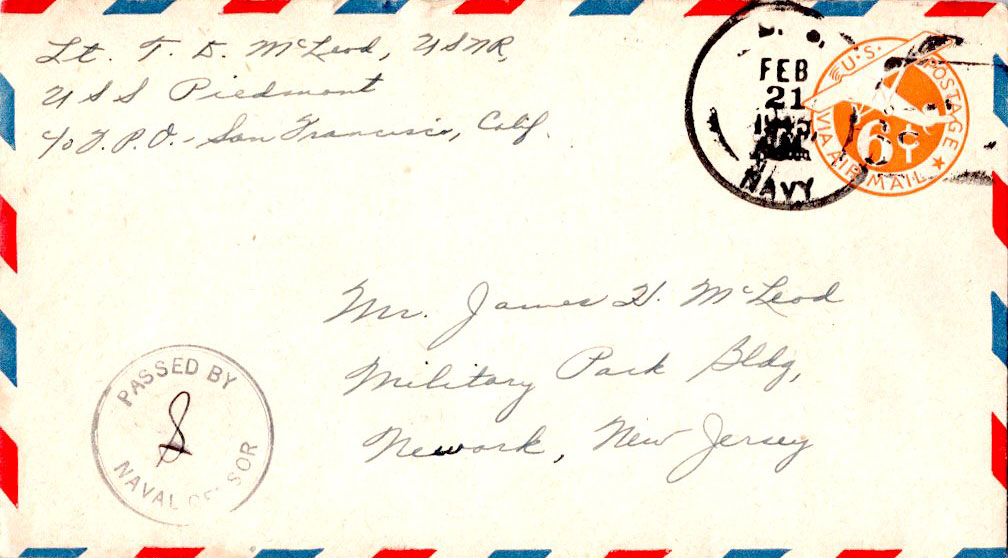 Lt. T. D. McLeod, USNR,
USS Piedmont
c/o F.P.O.- San Francisco, Calif.
FEB
21
1945
NAVY
U.S. POSTAGE
6¢
VIA AIR MAIL
Mr. James H. McLeod
Military Park Bldg,
Newark, New Jersey
PASSED BY
S
NAVAL CENSOR